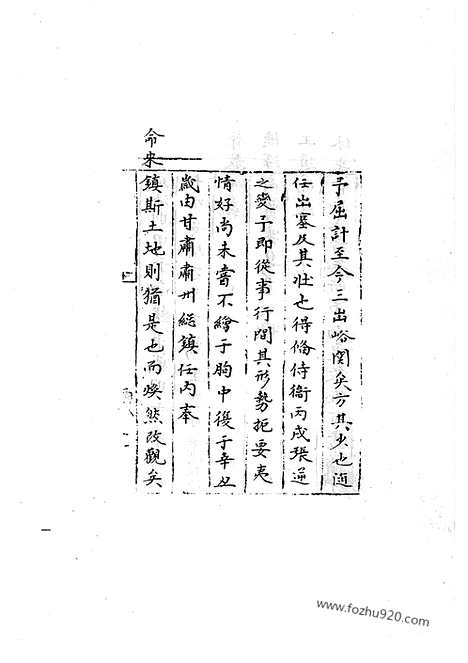 予屈計至今三出峪関矣方其少也随
任出塞及其壯也得俻侍衛丙戌張逆
之變予即從事行間其形勢扼要夷
情好尚未嘗不繪于胸中後于辛丑
歲由甘肅肅州総鎮任內奉
命来鎮斯土地則猶是也而煥然改觀矣
www.fozhu920.com